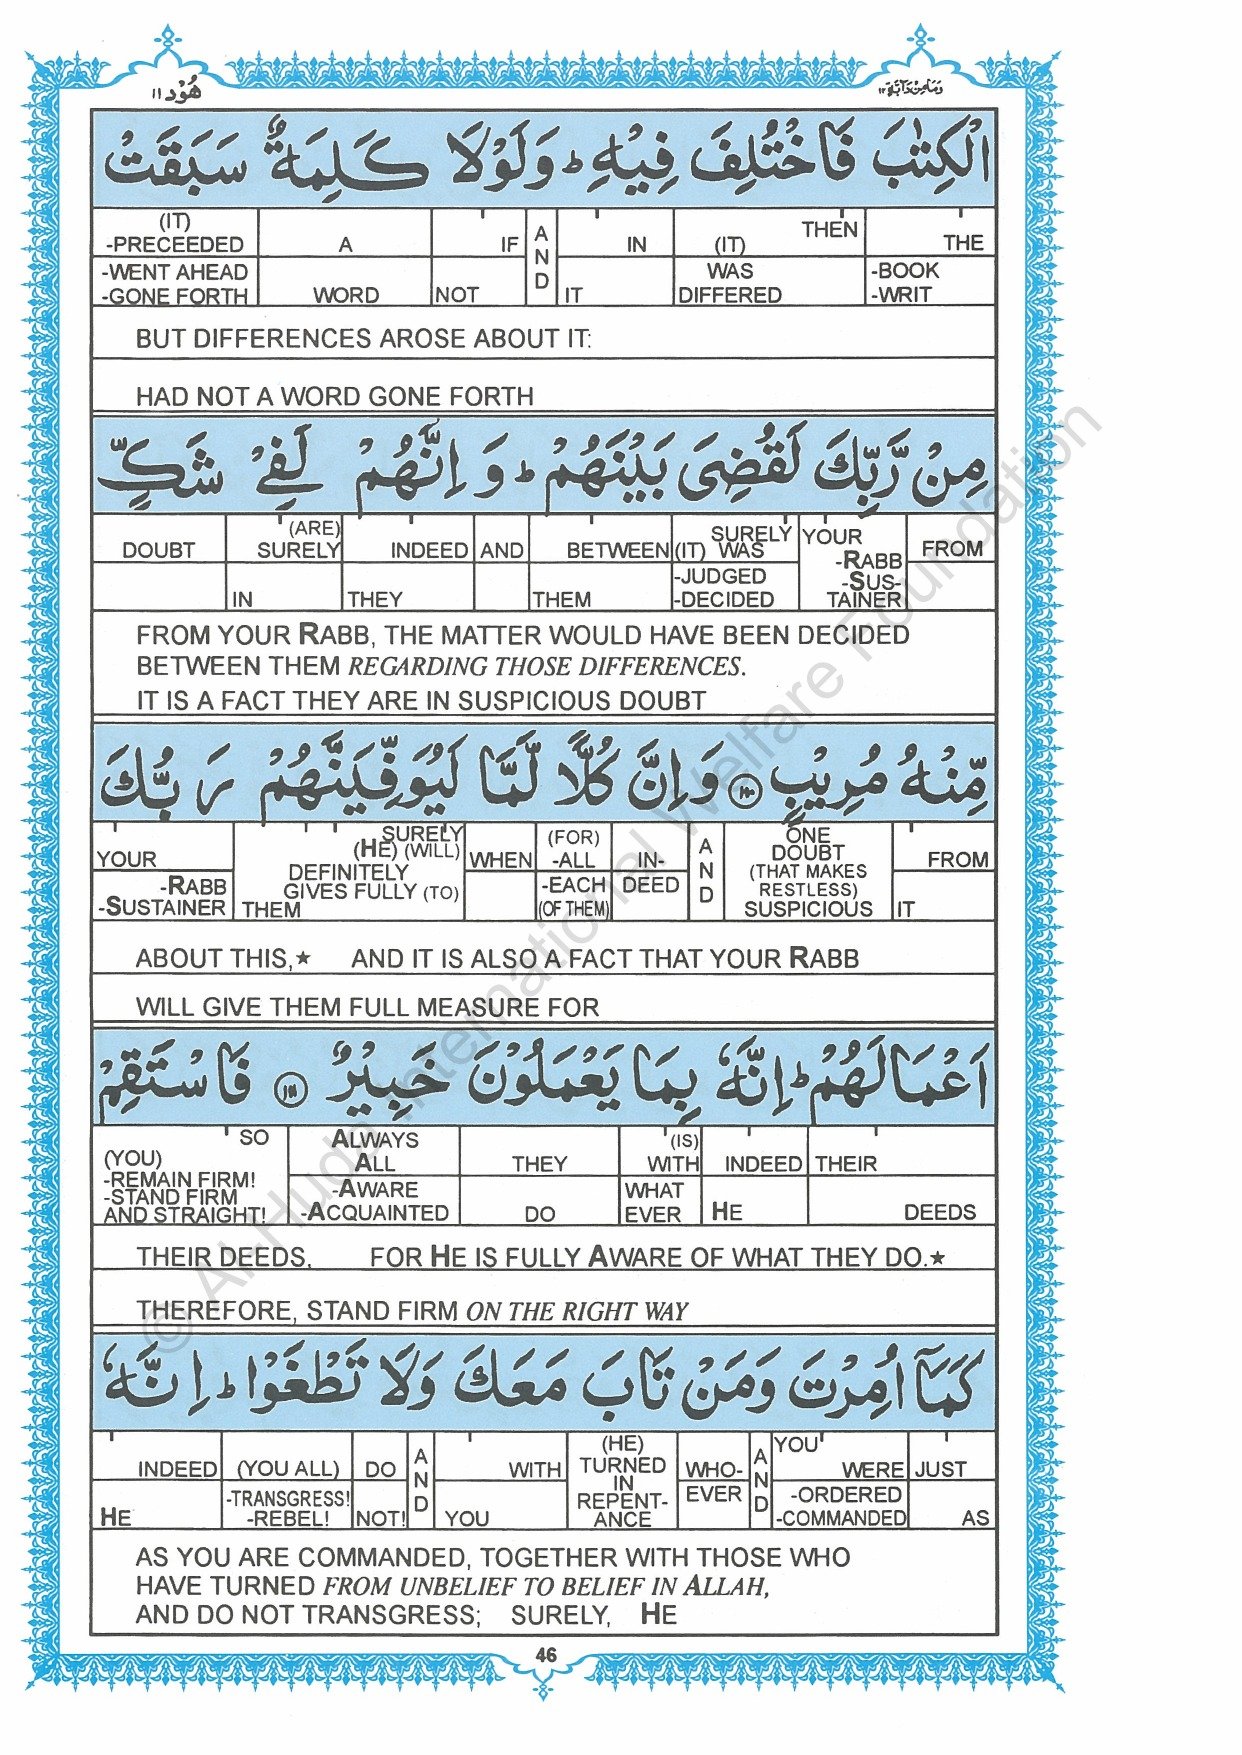 هُوْد ١١
وَمَا مِنْ دَآبَّة ١٢
الْكِتٰبَ فَاخْتُلِفَ فِيْهِ ؕ وَلَوْلَا كَلِمَةٌ سَبَقَتْ
(IT) -PRECEEDED A IF AND IN (IT) THEN THE
-WENT AHEAD -GONE FORTH WORD NOT IT WAS DIFFERED -BOOK -WRIT
BUT DIFFERENCES AROSE ABOUT IT:
HAD NOT A WORD GONE FORTH
مِنْ رَّبِّكَ لَقُضِيَ بَيْنَهُمْ ؕ وَ اِنَّهُمْ لَفِيْ شَكٍّ
DOUBT (ARE) SURELY INDEED AND BETWEEN SURELY (IT) WAS YOUR FROM
IN THEY THEM -JUDGED -DECIDED -RABB -SUS- TAINER
FROM YOUR RABB, THE MATTER WOULD HAVE BEEN DECIDED
BETWEEN THEM REGARDING THOSE DIFFERENCES.
IT IS A FACT THEY ARE IN SUSPICIOUS DOUBT
مِّنْهُ مُرِيْبٍ ١١٠ وَاِنَّ كُلًّا لَّمَّا لَيُوَفِّيَنَّهُمْ رَبُّكَ
YOUR SURELY (HE) (WILL) DEFINITELY GIVES FULLY (TO) WHEN (FOR) -ALL IN- AND ONE DOUBT (THAT MAKES RESTLESS) SUSPICIOUS FROM
-RABB -SUSTAINER THEM -EACH (OF THEM) DEED IT
ABOUT THIS,★ AND IT IS ALSO A FACT THAT YOUR RABB
WILL GIVE THEM FULL MEASURE FOR
اَعْمَالَهُمْ ؕ اِنَّهٗ بِمَا يَعْمَلُوْنَ خَبِيْرٌ ١١١ فَاسْتَقِمْ
SO (YOU) -REMAIN FIRM! -STAND FIRM AND STRAIGHT! ALWAYS ALL THEY (IS) WITH INDEED THEIR
-AWARE -ACQUAINTED DO WHAT EVER HE DEEDS
THEIR DEEDS, FOR HE IS FULLY AWARE OF WHAT THEY DO.★
THEREFORE, STAND FIRM ON THE RIGHT WAY
كَمَآ اُمِرْتَ وَمَنْ تَابَ مَعَكَ وَلَا تَطْغَوْا ؕ اِنَّهٗ
INDEED (YOU ALL) DO AND WITH (HE) TURNED IN REPENT- ANCE WHO- AND YOU WERE JUST
HE -TRANSGRESS! -REBEL! NOT! YOU EVER -ORDERED -COMMANDED AS
AS YOU ARE COMMANDED, TOGETHER WITH THOSE WHO
HAVE TURNED FROM UNBELIEF TO BELIEF IN ALLAH,
AND DO NOT TRANSGRESS; SURELY, HE
46
© Al-Huda International Welfare Foundation